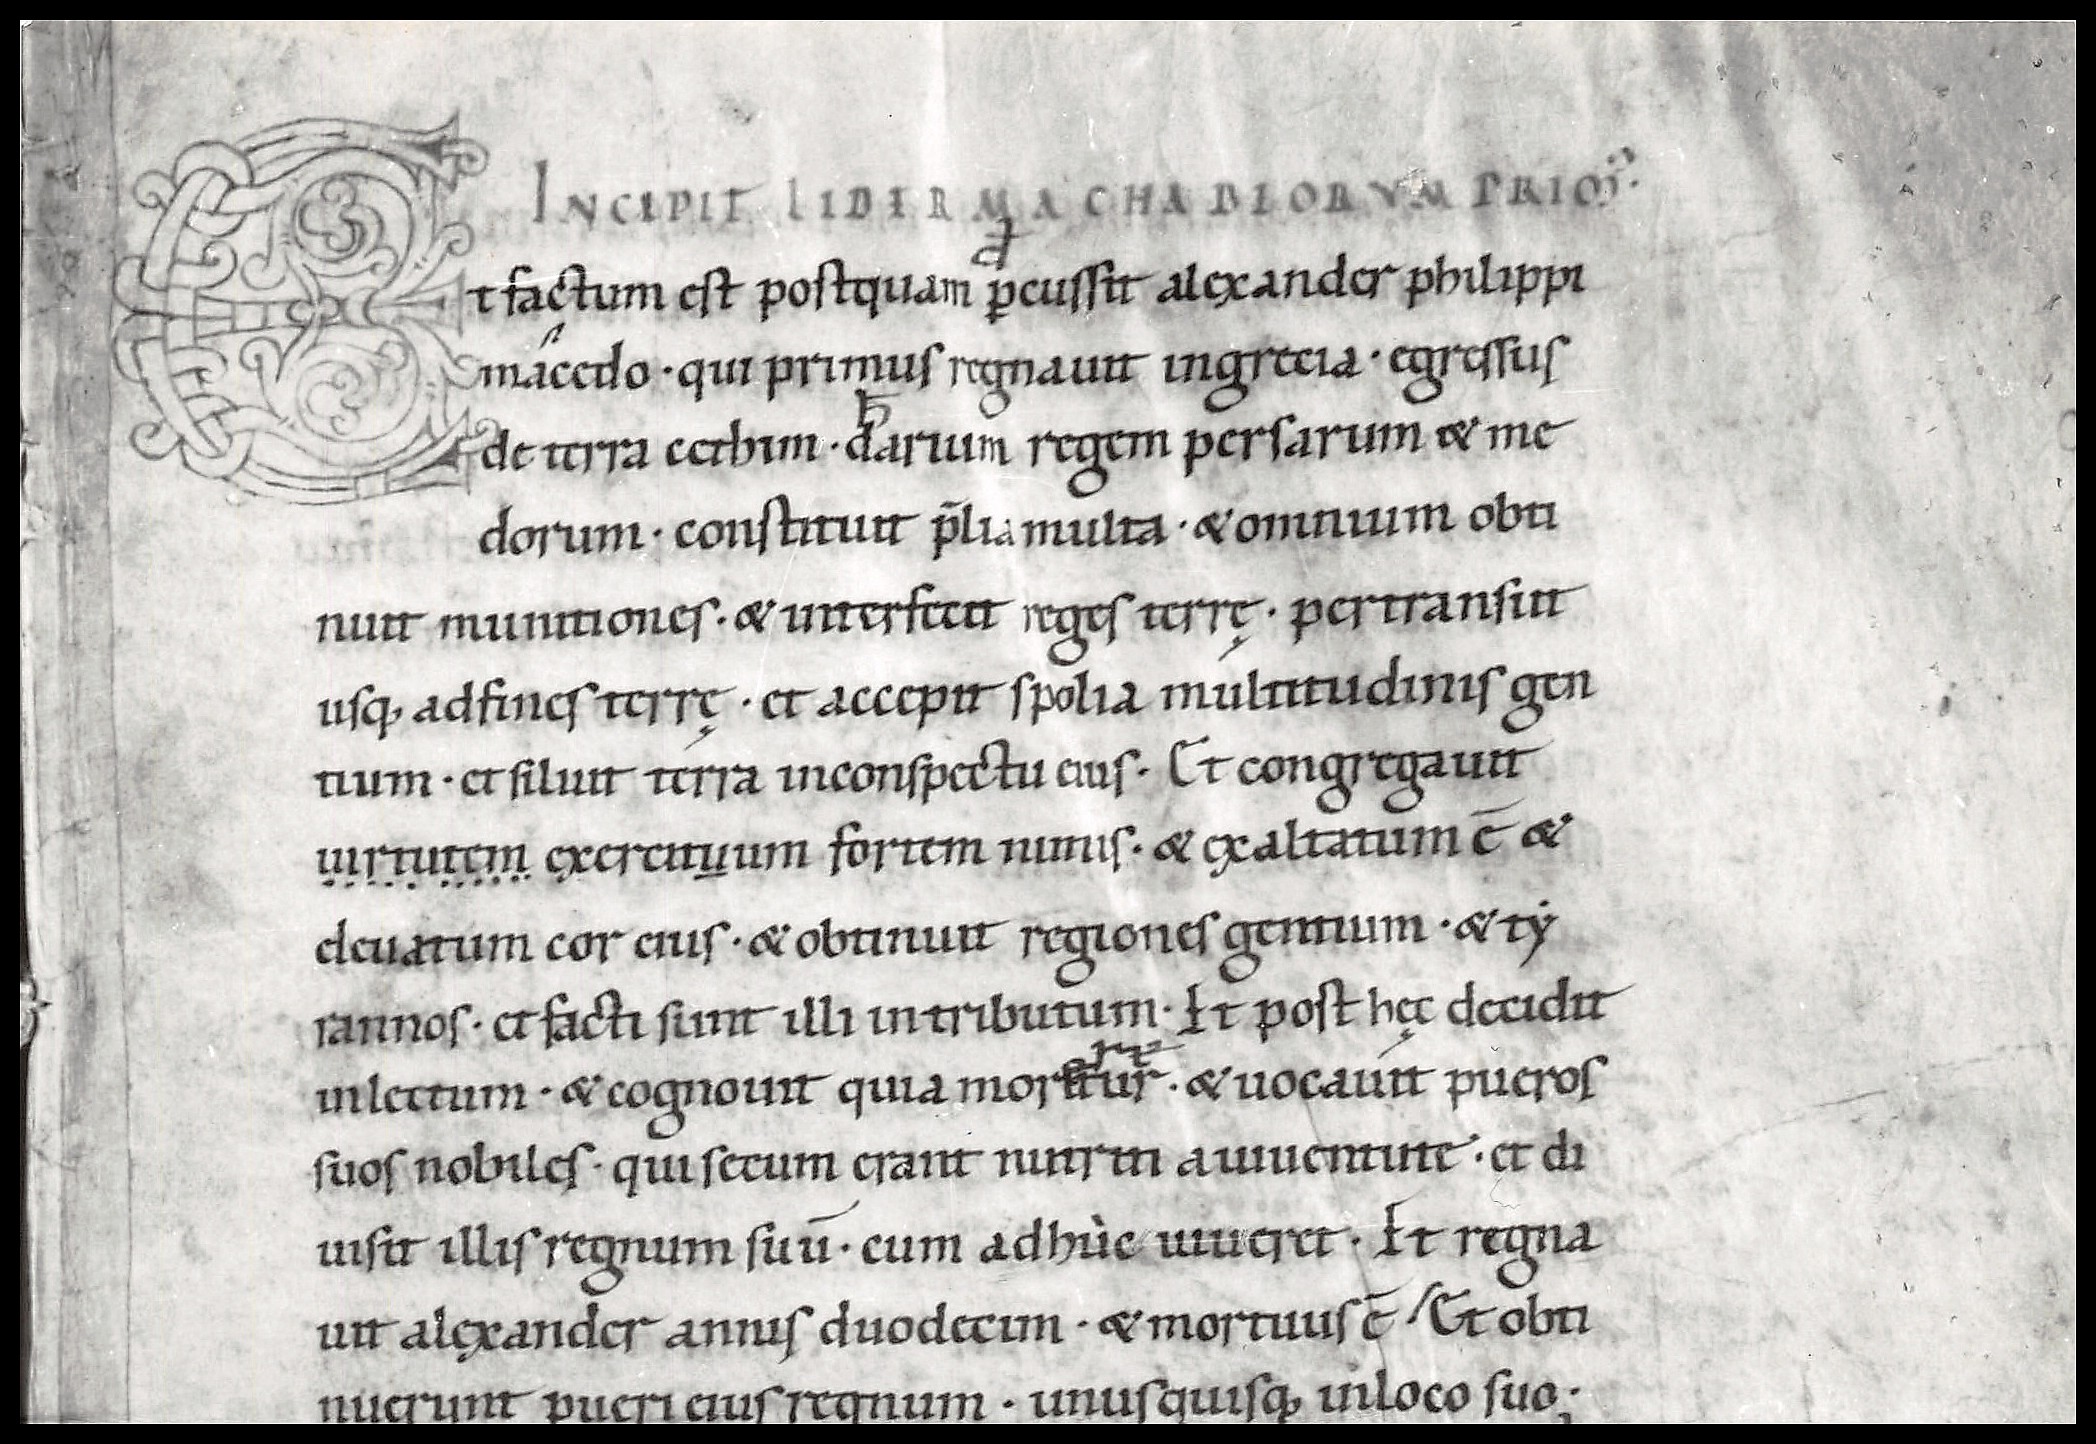 INCIPIT LIBER MACHABEORVM PRIOR:
Et factum est postquam ꝑcussit alexander philippi
macedo · qui primus regnauit ingrecia · egressus
de terra cethim · darium regem persarum & me
dorum · constituit p̄lia multa · & omnium obti
nuit munitiones · & interfecit reges terrę · pertransiit
usq; adfines terrę · et accepit spolia multitudinis gen
tium · et siluit terra inconspectu eius · Et congregauit
uirtutem exercituum fortem nimis · & exaltatum ē &
eleuatum cor eius · & obtinuit regiones gentium · & tẏ
rannos · et facti sunt illi intributum · Et post hęc decidit
inlectum · & cognouit quia moritur · & uocauit pueros
suos nobiles · qui secum erant nutriti aiuuentute · et di
uisit illis regnum suū · cum adhuc uiueret · Et regna
uit alexander annis duodecim · & mortuus ē / Et obti
nuerunt pueri eius regnum · unusquisq; inloco suo;